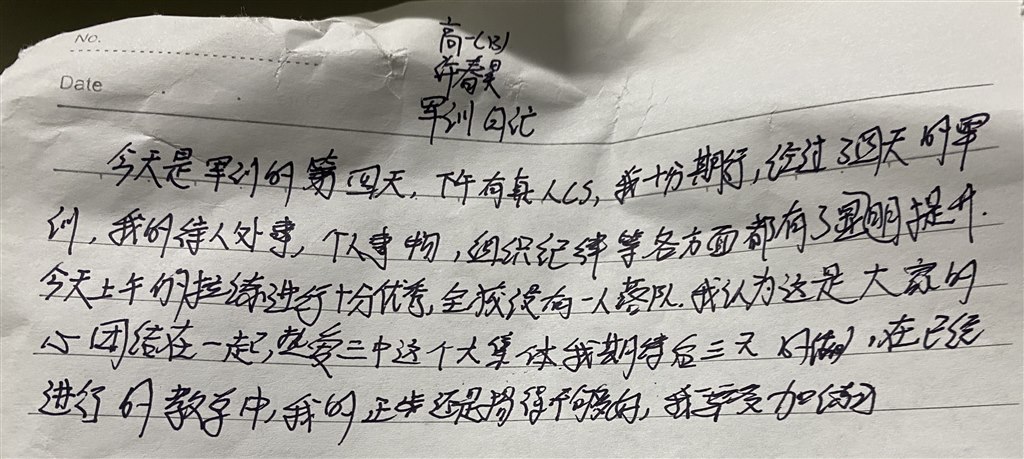 No.
高一(13)
许春昊
Date
军训日记
今天是军训的第四天,下午有真人CS,我十分期待,经过了四天的军
训,我的待人处事,个人事物,组织纪律等各方面都有了显明提升.
今天上午的拉练进行十分优秀,全孩没有一人落队.我认为这是大家的
心团结在一起,热爱三中这个大集体我期待后三天的,在已经
进行的教学中,我的正步还是踢得不够好,我要加练习